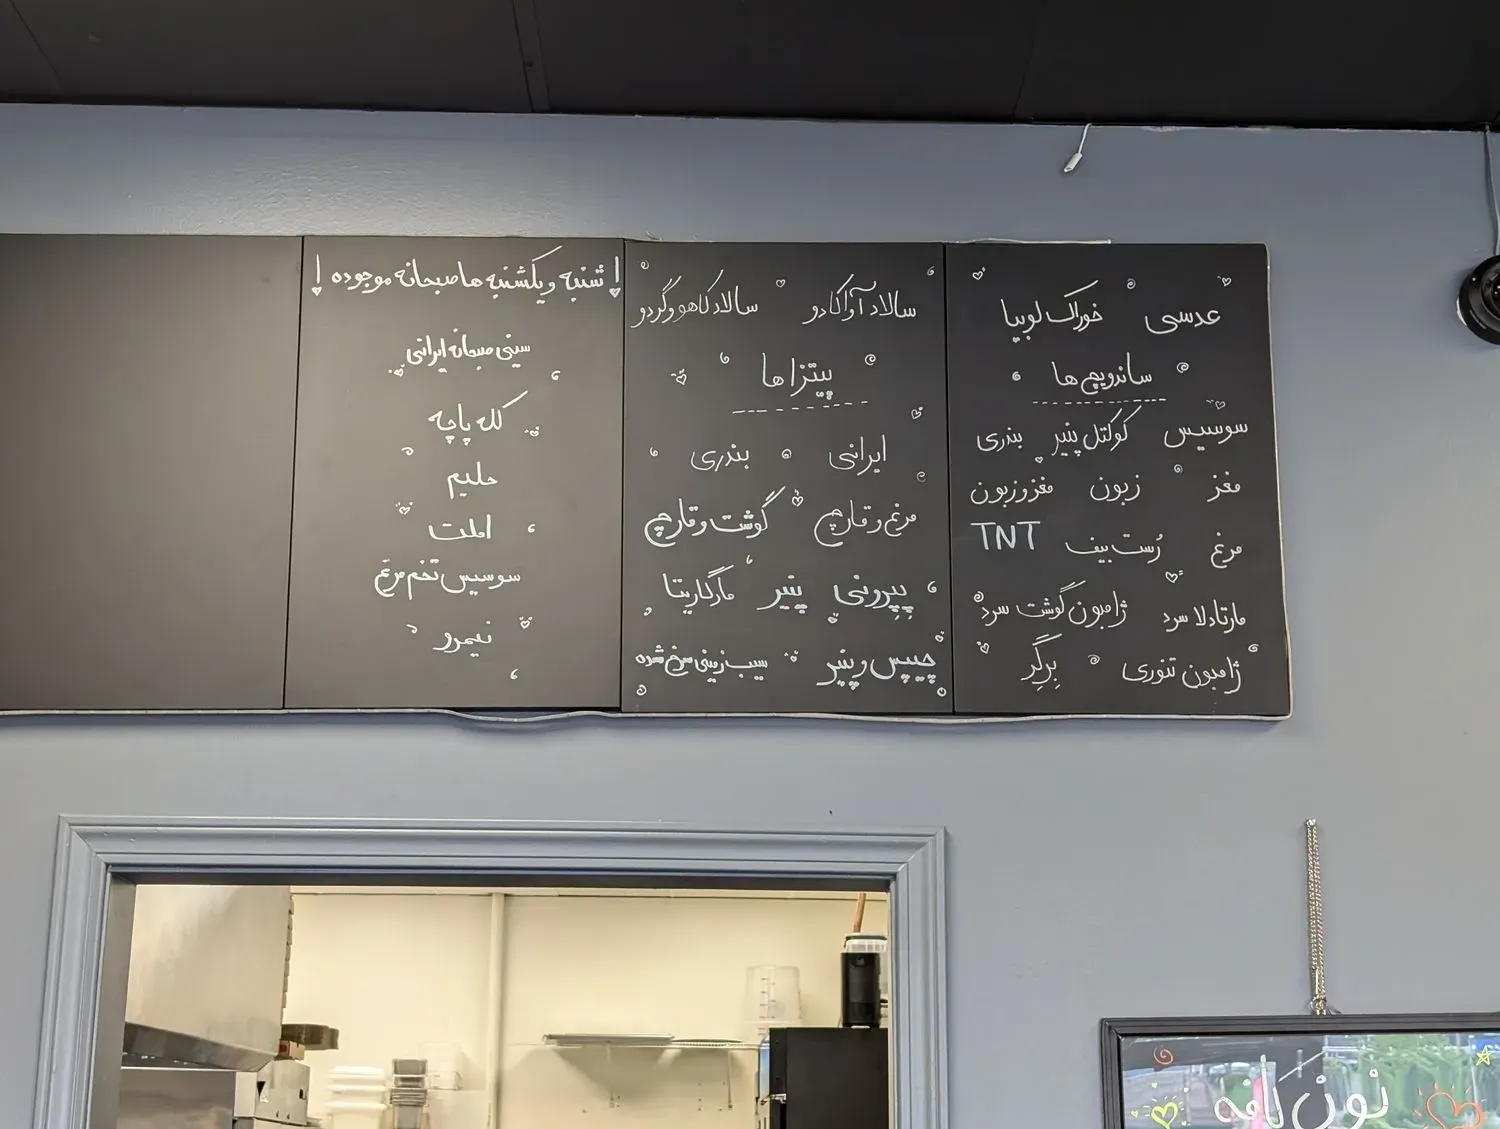 عدسی خوراک لوبیا
ساندویچ ها
سوسیس کوکتل پنیر بندری
مغز زبون مغز و زبون
مرغ رُست بیف TNT
مارتادلا سرد ژامبون گوشت سرد
ژامبون تنوری بِرگِر
سالاد آواکادو سالاد کاهو و گردو
پیتزا ها
ایرانی بندری
مرغ و قارچ گوشت و قارچ
پِپِرونی پنیر مارگاریتا
چیپس و پنیر سیب زمینی سرخ شده
! شنبه و یکشنبه ها صبحانه موجوده !
سینی صبحانه ایرانی
کله پاچه
حلیم
املت
سوسیس تخم مرغ
نیمرو
نون کافه